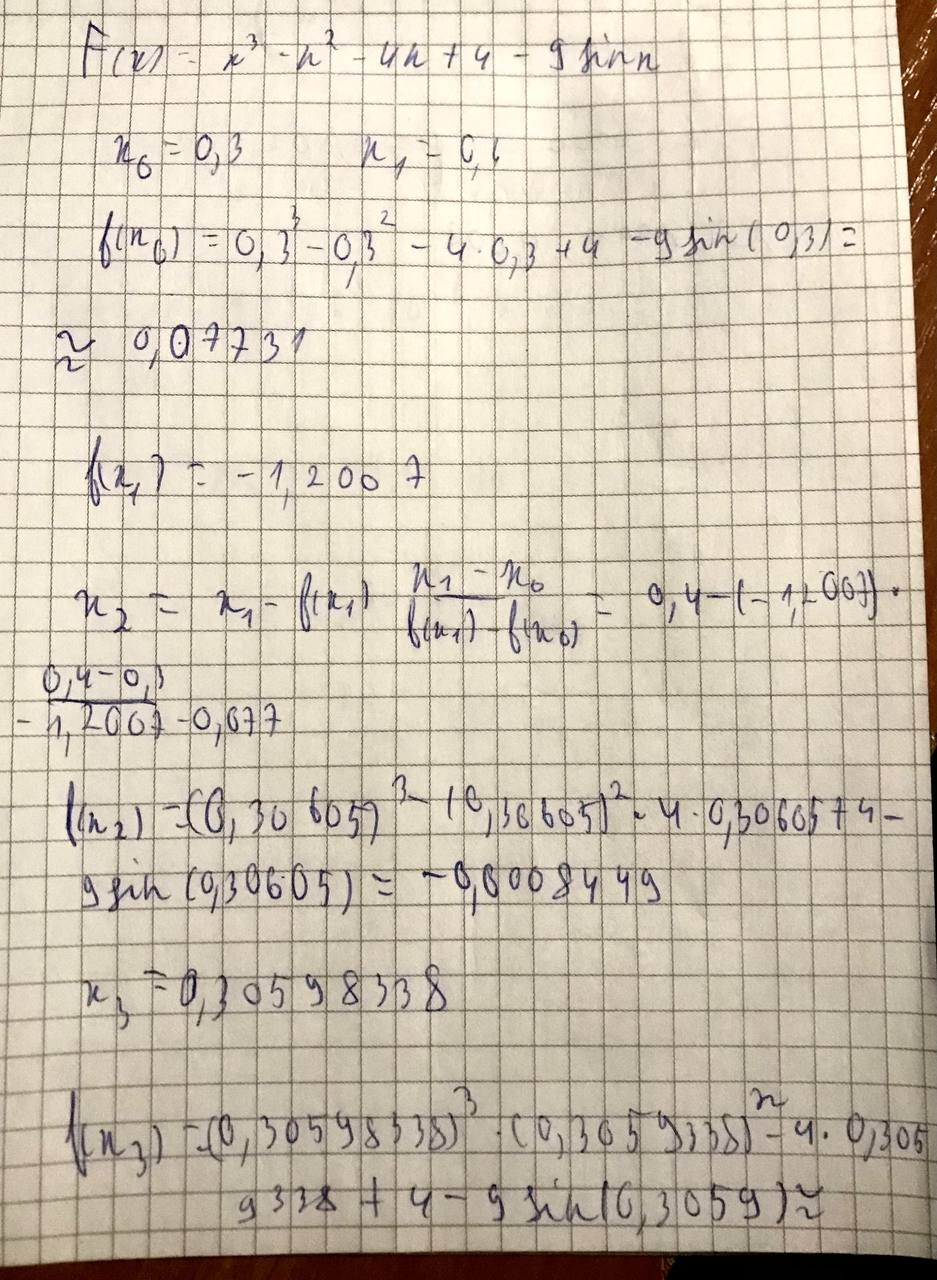 F(x) = x³ - x² - 4x + 4 - 9 sin x
x₀ = 0,3 x₁ = 0,4
f(x₀) = 0,3³ - 0,3² - 4·0,3 + 4 - 9 sin(0,3) =
≈ 0,07731
f(x₁) = -1,2007
x₂ = x₁ - f(x₁) (x₁ - x₀)/(f(x₁) - f(x₀)) = 0,4 - (-1,2007) ·
(0,4 - 0,3)/(-1,2007 - 0,077)
f(x₂) = (0,30605)³ - (0,30605)² - 4·0,30605 + 4 -
9 sin(0,30605) = -0,0008449
x₃ = 0,30598338
f(x₃) = (0,30598338)³ - (0,3059338)² - 4·0,305
9338 + 4 - 9 sin(0,3059) ≈